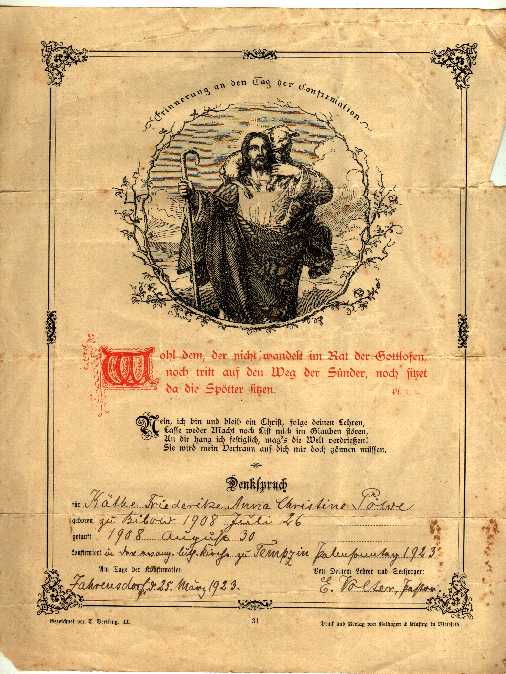 Erinnerung an den Tag der Confirmation
Wohl dem, der nicht wandelt im Rat der Gottlosen,
noch tritt auf den Weg der Sünder, noch sitzet
da die Spötter sitzen. Ps. 1, 1.
Nein, ich bin und bleib ein Christ, folge deinen Lehren,
Lasse weder Macht noch List mich im Glauben stören.
An dir hang ich festiglich, mag's die Welt verdrießen!
Sie wird mein Vertraun auf dich mir doch gönnen müssen.
Denkspruch
für Käthe Friederike Anna Christine
geboren zu Bibow 1908 Juli 26
getauft 1908 August 30
konfirmiert in der evang. luth. Kirche zu Tempzin Palmsonntag 1923
Am Tage der Konfirmation Von Deinem Lehrer und Seelsorger:
Zahrensdorf, d. 25. März 1923. Pastor
Gezeichnet von 31 Druck und Verlag von Velhagen & Klasing in Bielefeld